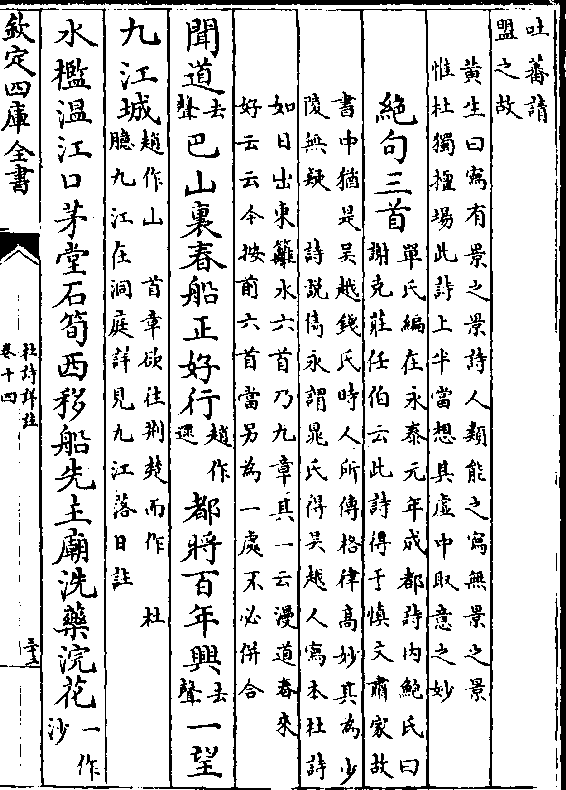 吐蕃請
盟之故
黄生曰寫有景之景詩人類能之寫無景之景
惟杜獨擅場此詩上半當想其虛中取意之妙
絶句三首 單氏編在永泰元年成都詩内鮑氏曰
謝克莊任伯云此詩得于慎文肅家故
書中猶是吳越錢氏時人所傳格律髙妙其為少
陵無疑 詩說雋永謂晁氏得吳越人寫本杜詩
如日出東籬水六首乃九章其一云漫道春來
好云云今按前六首當另為一處不必併合
聞道去聲巴山裏春船正好行趙作還都將百年興去聲一望
九江城趙作山 首章欲往荆楚而作 杜
臆九江在洞庭詳見九江落日註
水檻温江口茅堂石筍西移船先主廟洗藥浣花一作沙
欽定四庫全書
杜詩詳註
卷十四